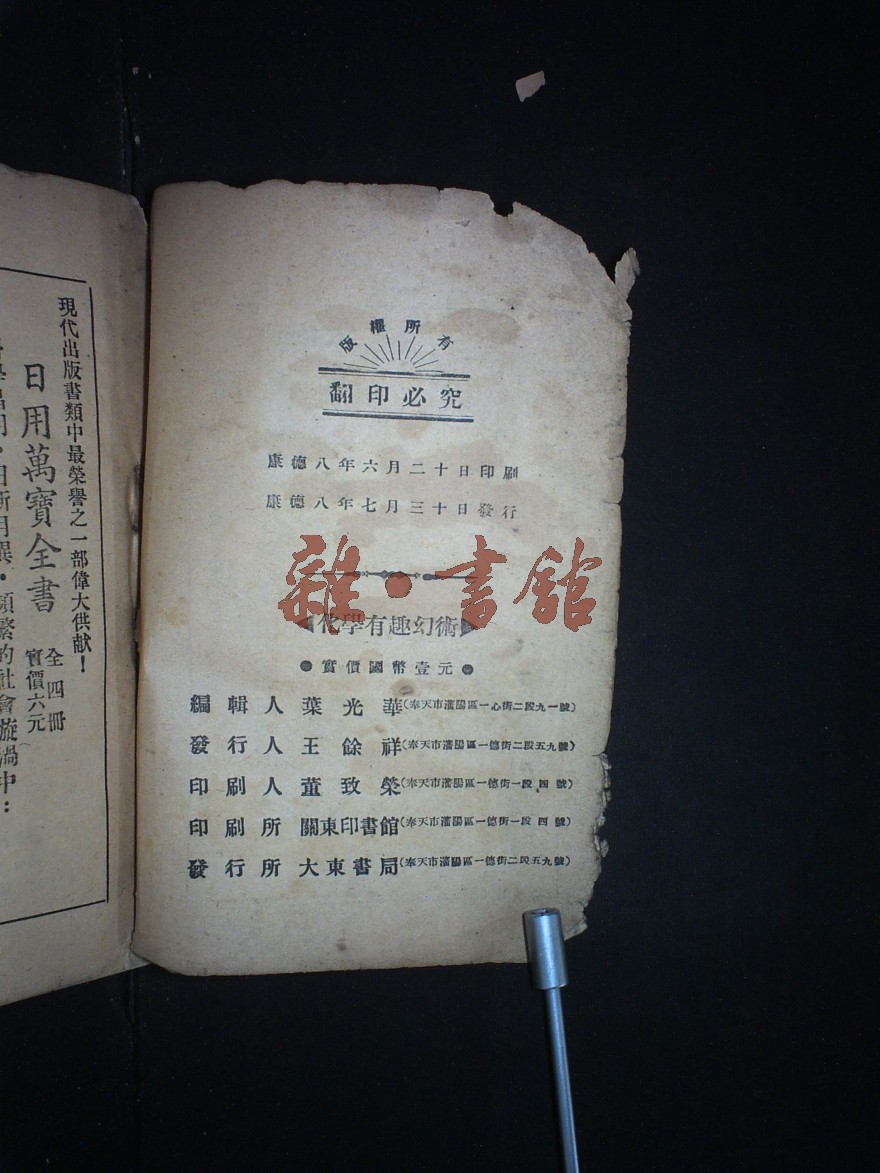 版權所有
翻印必究
康德八年六月二十日印刷
康德八年七月三十日發行
雜·書館
化學有趣幻術
●實價國幣壹元●
編輯人葉光華(奉天市瀋陽區一心街二段九一號)
發行人王餘祥(奉天市瀋陽區一德街二段五九號)
印刷人董致榮(奉天市瀋陽區一德街一段四號)
印刷所關東印書館(奉天市瀋陽區一德街一段四號)
發行所大東書局(奉天市瀋陽區一德街二段五九號)
現代出版書類中最榮譽之一部偉大供献！
日用萬寶全書
全四冊
實價六元
繁的社會漩渦中：